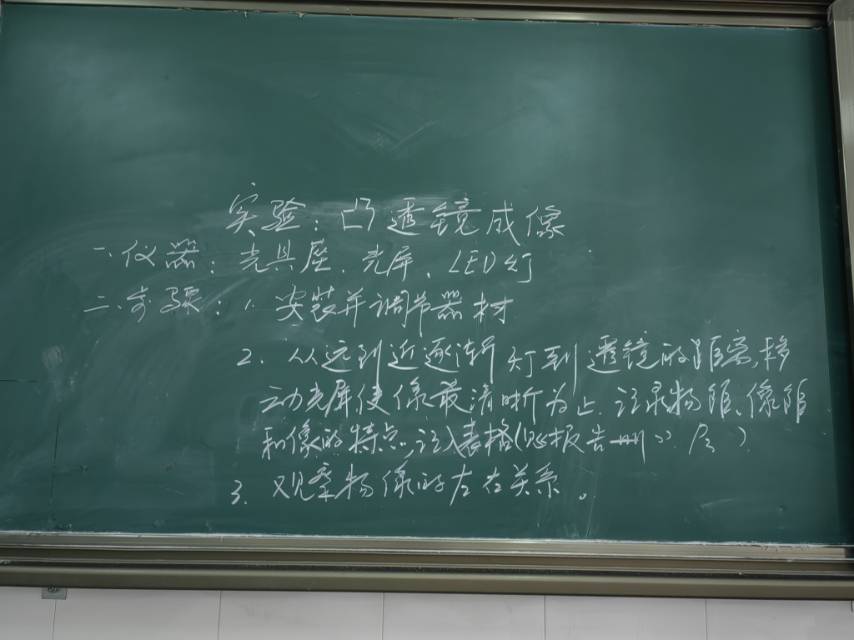 实验：凸透镜成像
一、仪器：光具座、光屏、LED灯
二、步骤：1. 安装并调节器材
2. 从远到近逐渐 灯到透镜的距离,移
动光屏使像最清晰为止.记录物距、像距
和像的特点,记入表格(见报告册
3. 观察物像的左右关系。